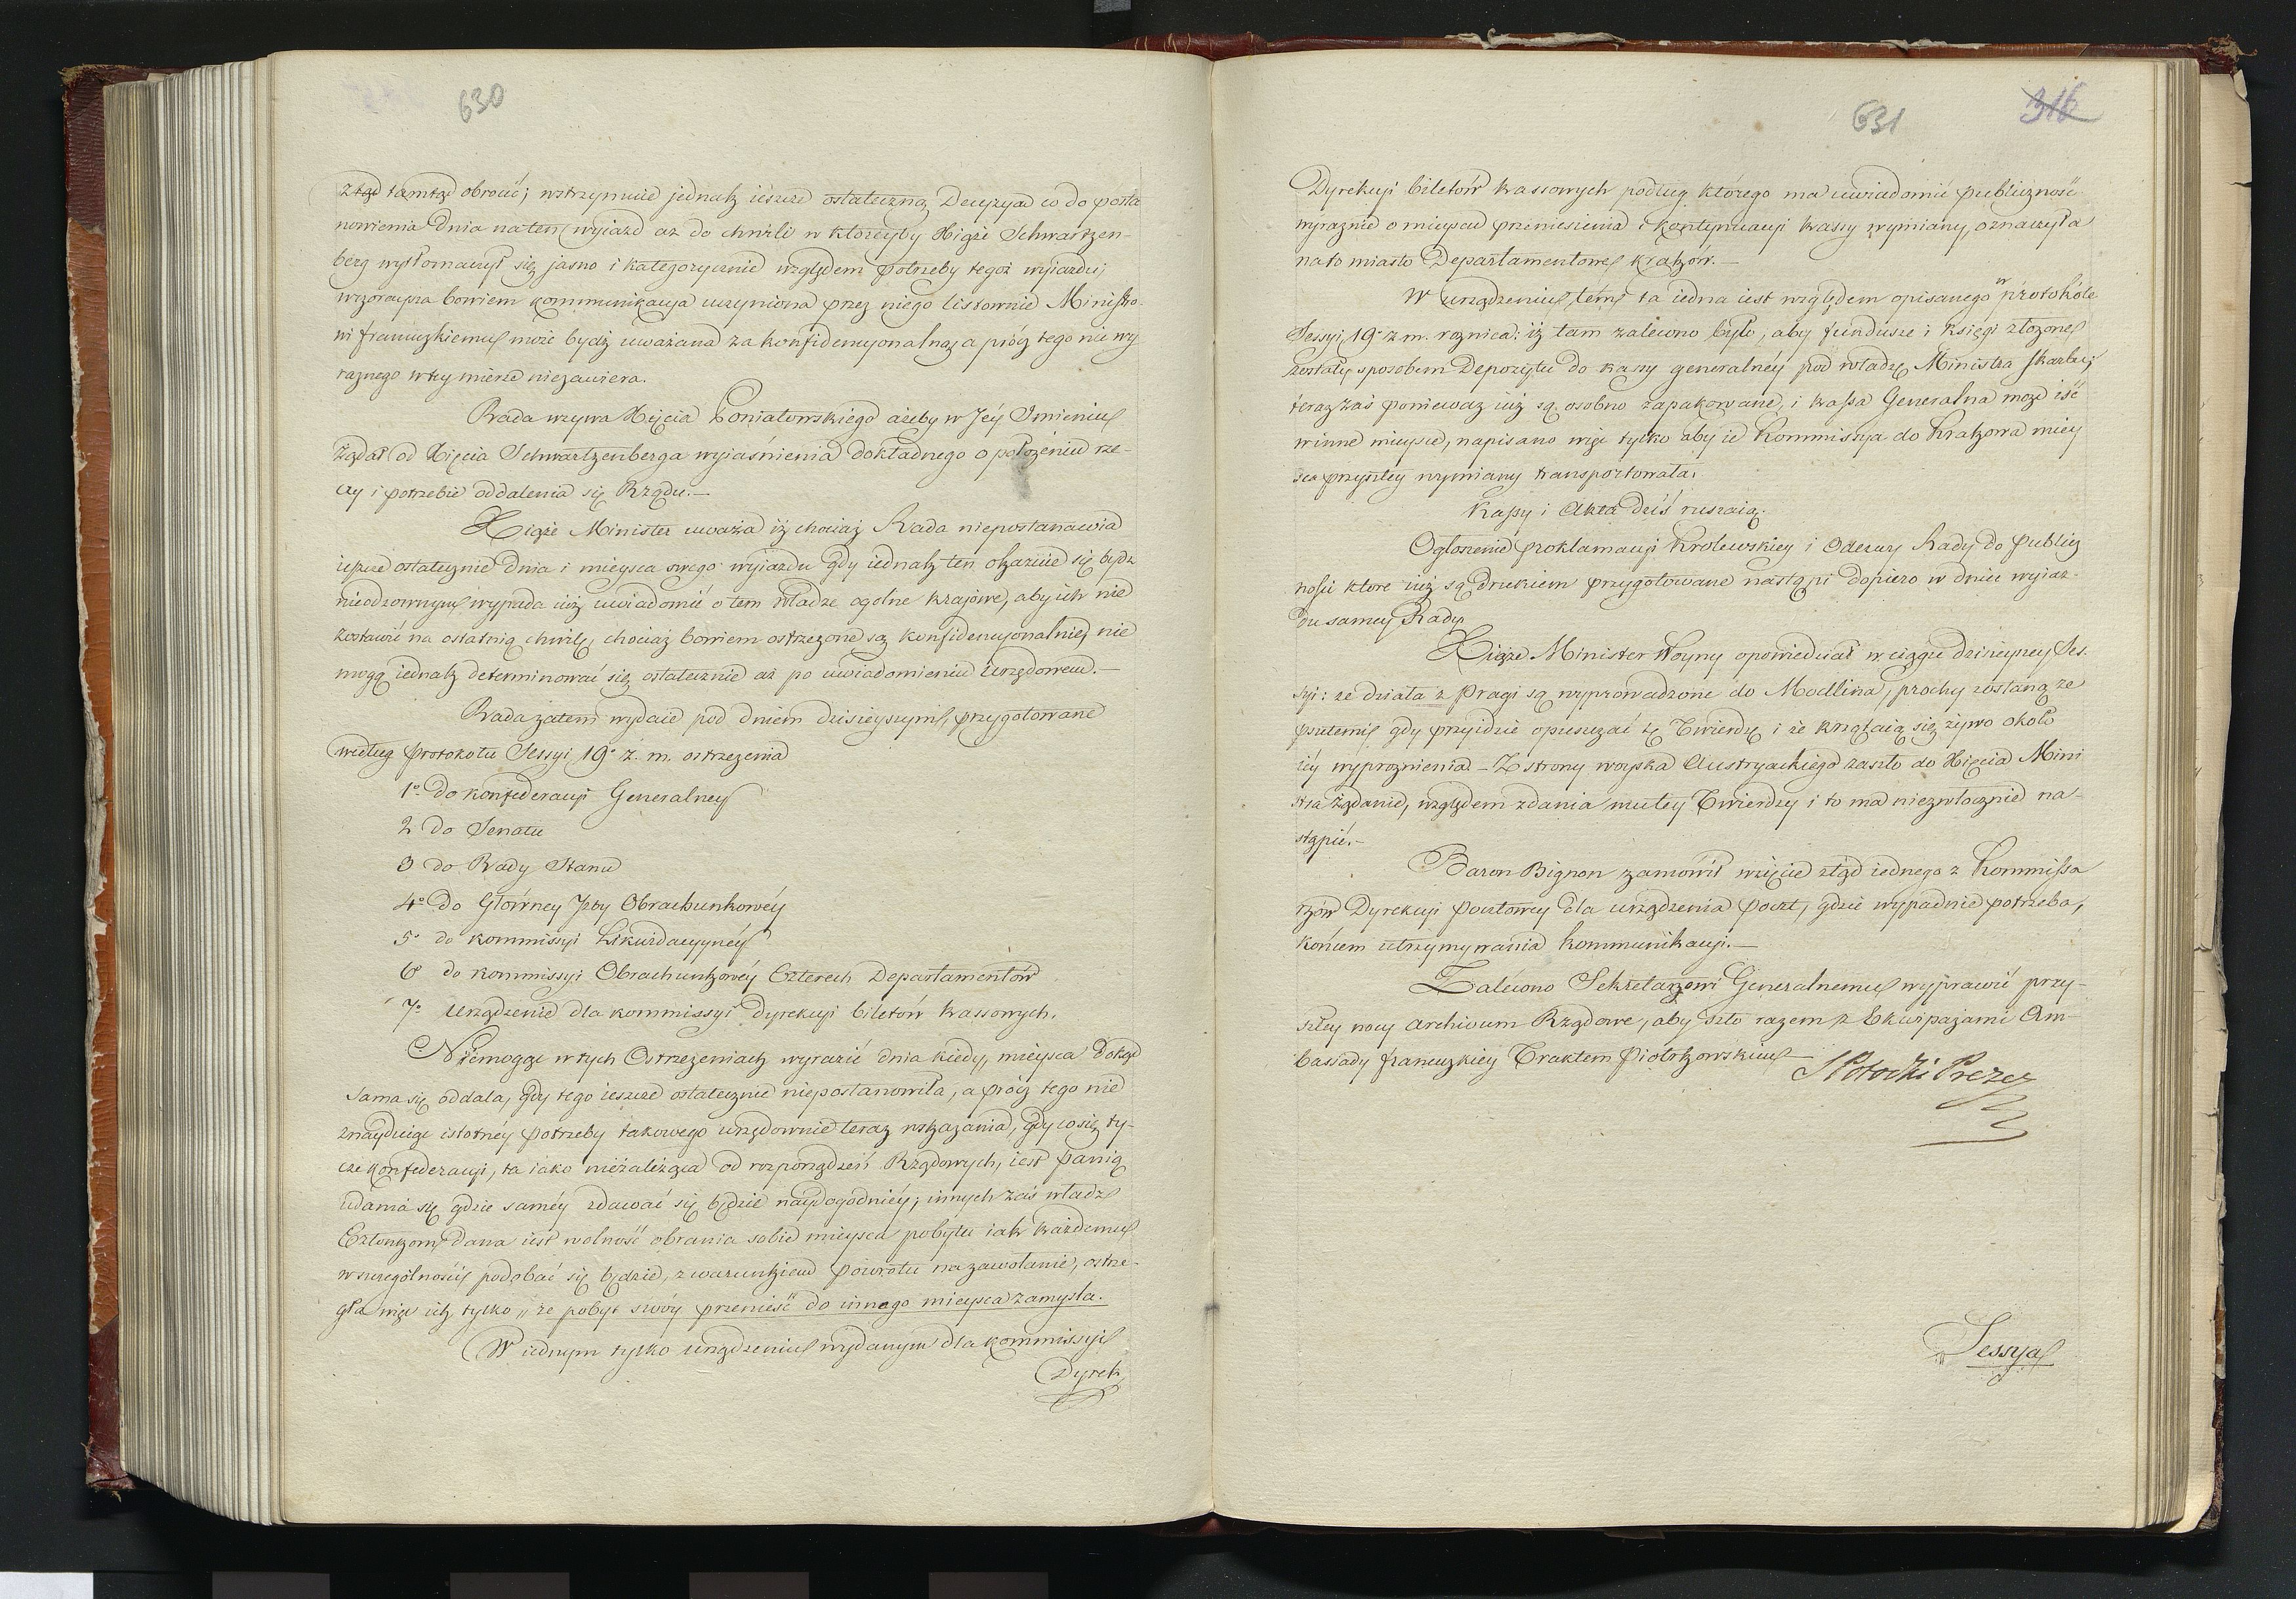 630
ztąd tamtąd obrocić; wstrzymuie jednak ieszcze ostateczną Decyzyą co do posta
nowienia Dnia na ten wyiazd aż do chwili w ktoreyby Xiąże Schwartzen-
berg wytłomaczył się jasno i kategorycznie względem potrzeby tegoż wyiazdu;
wczoraysza bowiem kommunikacya uczyniona przez niego listownie Ministro-
wi francuzkiemu może bydź uważana za konfidencyonalną a prócz tego nic wy
raznego w tey mierze niezawiera.
Rada wzywa Xięcia Poniatowskiego ażeby w Jéy Imieniu
żądał od Xięcia Schwartzenberga wyiaśnienia dokładnego o położeniu rze-
czy i potrzebie oddalenia się Rządu.—
Xiąże Minister uważa iż chociaż Rada niepostanawia
ieszcze ostatecznie dnia i mieysca swego wyiazdu gdy iednak ten okazuie się bydź
nieodzownym wypada iuż uwiadomić o tem władze ogolne krajowe, aby ich nie
zostawić na ostatnią chwilę, chociaż bowiem ostrzeżone są konfidencyonalnie, nie
mogą iednak determinować się ostatecznie aż po uwiadomieniu Urzędowem.—
Rada zatem wydaie pod dniem dzisieyszym, przygotowane
według protokołu Sessyi 19° z. m. ostrzeżenia
1° do Konfederacyi Generalney
2 do Senatu
3 do Rady Stanu
4° do Głównéy Izby Obrachunkowéy
5° do kommissyi Likwidacyynéy
6° do kommissyi Obrachunkowéy Czterech Departamentów
7° Urządzenie dla kommissyi Dyrekcyi biletów kassowych.
Niemogąc w tych Ostrzeżeniach wyrazić dnia kiedy, mieysca dokąd
sama się oddala, gdy tego ieszcze ostatecznie niepostanowiła, a prócz tego nie
znayduiąc istotnéy potrzeby takowego urzędownie teraz wskazania, gdy co się ty-
cze Konfederacyi, ta iako niezależąca od rozporządzeń Rządowych, iest panią
udania się gdzie saméy zdawać się będzie naydogodniéy; innych zaś władz
Członkom dana iest wolność obrania sobie mieysca pobytu iak każdemu
w szczególności podobać się będzie, z warunkiem powrotu na zawołanie, ostrze-
gła więc ich tylko „że pobyt swóy przenieść do innego mieysca zamysla.
W iednym tylko urządzeniu wydanym dla kommissyi
Dyrek
631
316
Dyrekcyi biletów kassowych podług którego ma uwiadomić publiczność
wyraznie o mieyscu przeniesienia i kontynuacyi kassy wymiany, oznaczyła
na to miasto Departamentowe Kraków.—
W urządzeniu tém ta iedna iest względem opisanego w protokóle
Sessyi 19° z. m. roznica: iż tam zalecono było, aby fundusze i księgi złożone
zostały sposobem Depozytu do kassy generalnéy pod władzę Ministra Skarbu;
teraz zaś ponieważ iuż są osobno zapakowane, i kassa Generalna może iść
w inne mieysce, napisano więc tylko aby ie Kommissya do Krakowa miey
sca przyszłéy wymiany transportowała.
Kassy i Akta dziś ruszaią.
Ogłoszenie proklamacyi Krolewskiey i Odezwy Rady do Publicz
nosci ktore iuż są drukiem przygotowane nastąpi dopiero w dniu wyiaz-
du samey Rady.
Xiąże Minister Woyny opowiedział w ciągu dzisieyszey Ses-
syi: że działa z Pragi są wyprowadzone do Modlina, prochy zostaną ze
psutemi gdy przyidzie opuszczać tę Twierdzę i że krzątaią się żywo około
iéy wyproznienia.— Z strony woyska Austryackiego zaszło do Xięcia Mini
stra żądanie, względem zdania mu tey Twierdzy i to ma niezwłocznie na-
stąpić.—
Baron Bignon zamówił wzięcie ztąd iednego z Kommissa
rzów Dyrekcyi pocztowey dla urządzenia poczt, gdzie wypadnie potrzeba,
końcem utrzymywania kommunikacyi.—
Zalecono Sekretarzowi Generalnemu wyprawić przy-
szłey nocy Archivum Rządowe, aby szło razem z Ekwipażami Am-
bassady francuzkiey Traktem Piotrkowskim—
S Potocki Prezes
Sessya